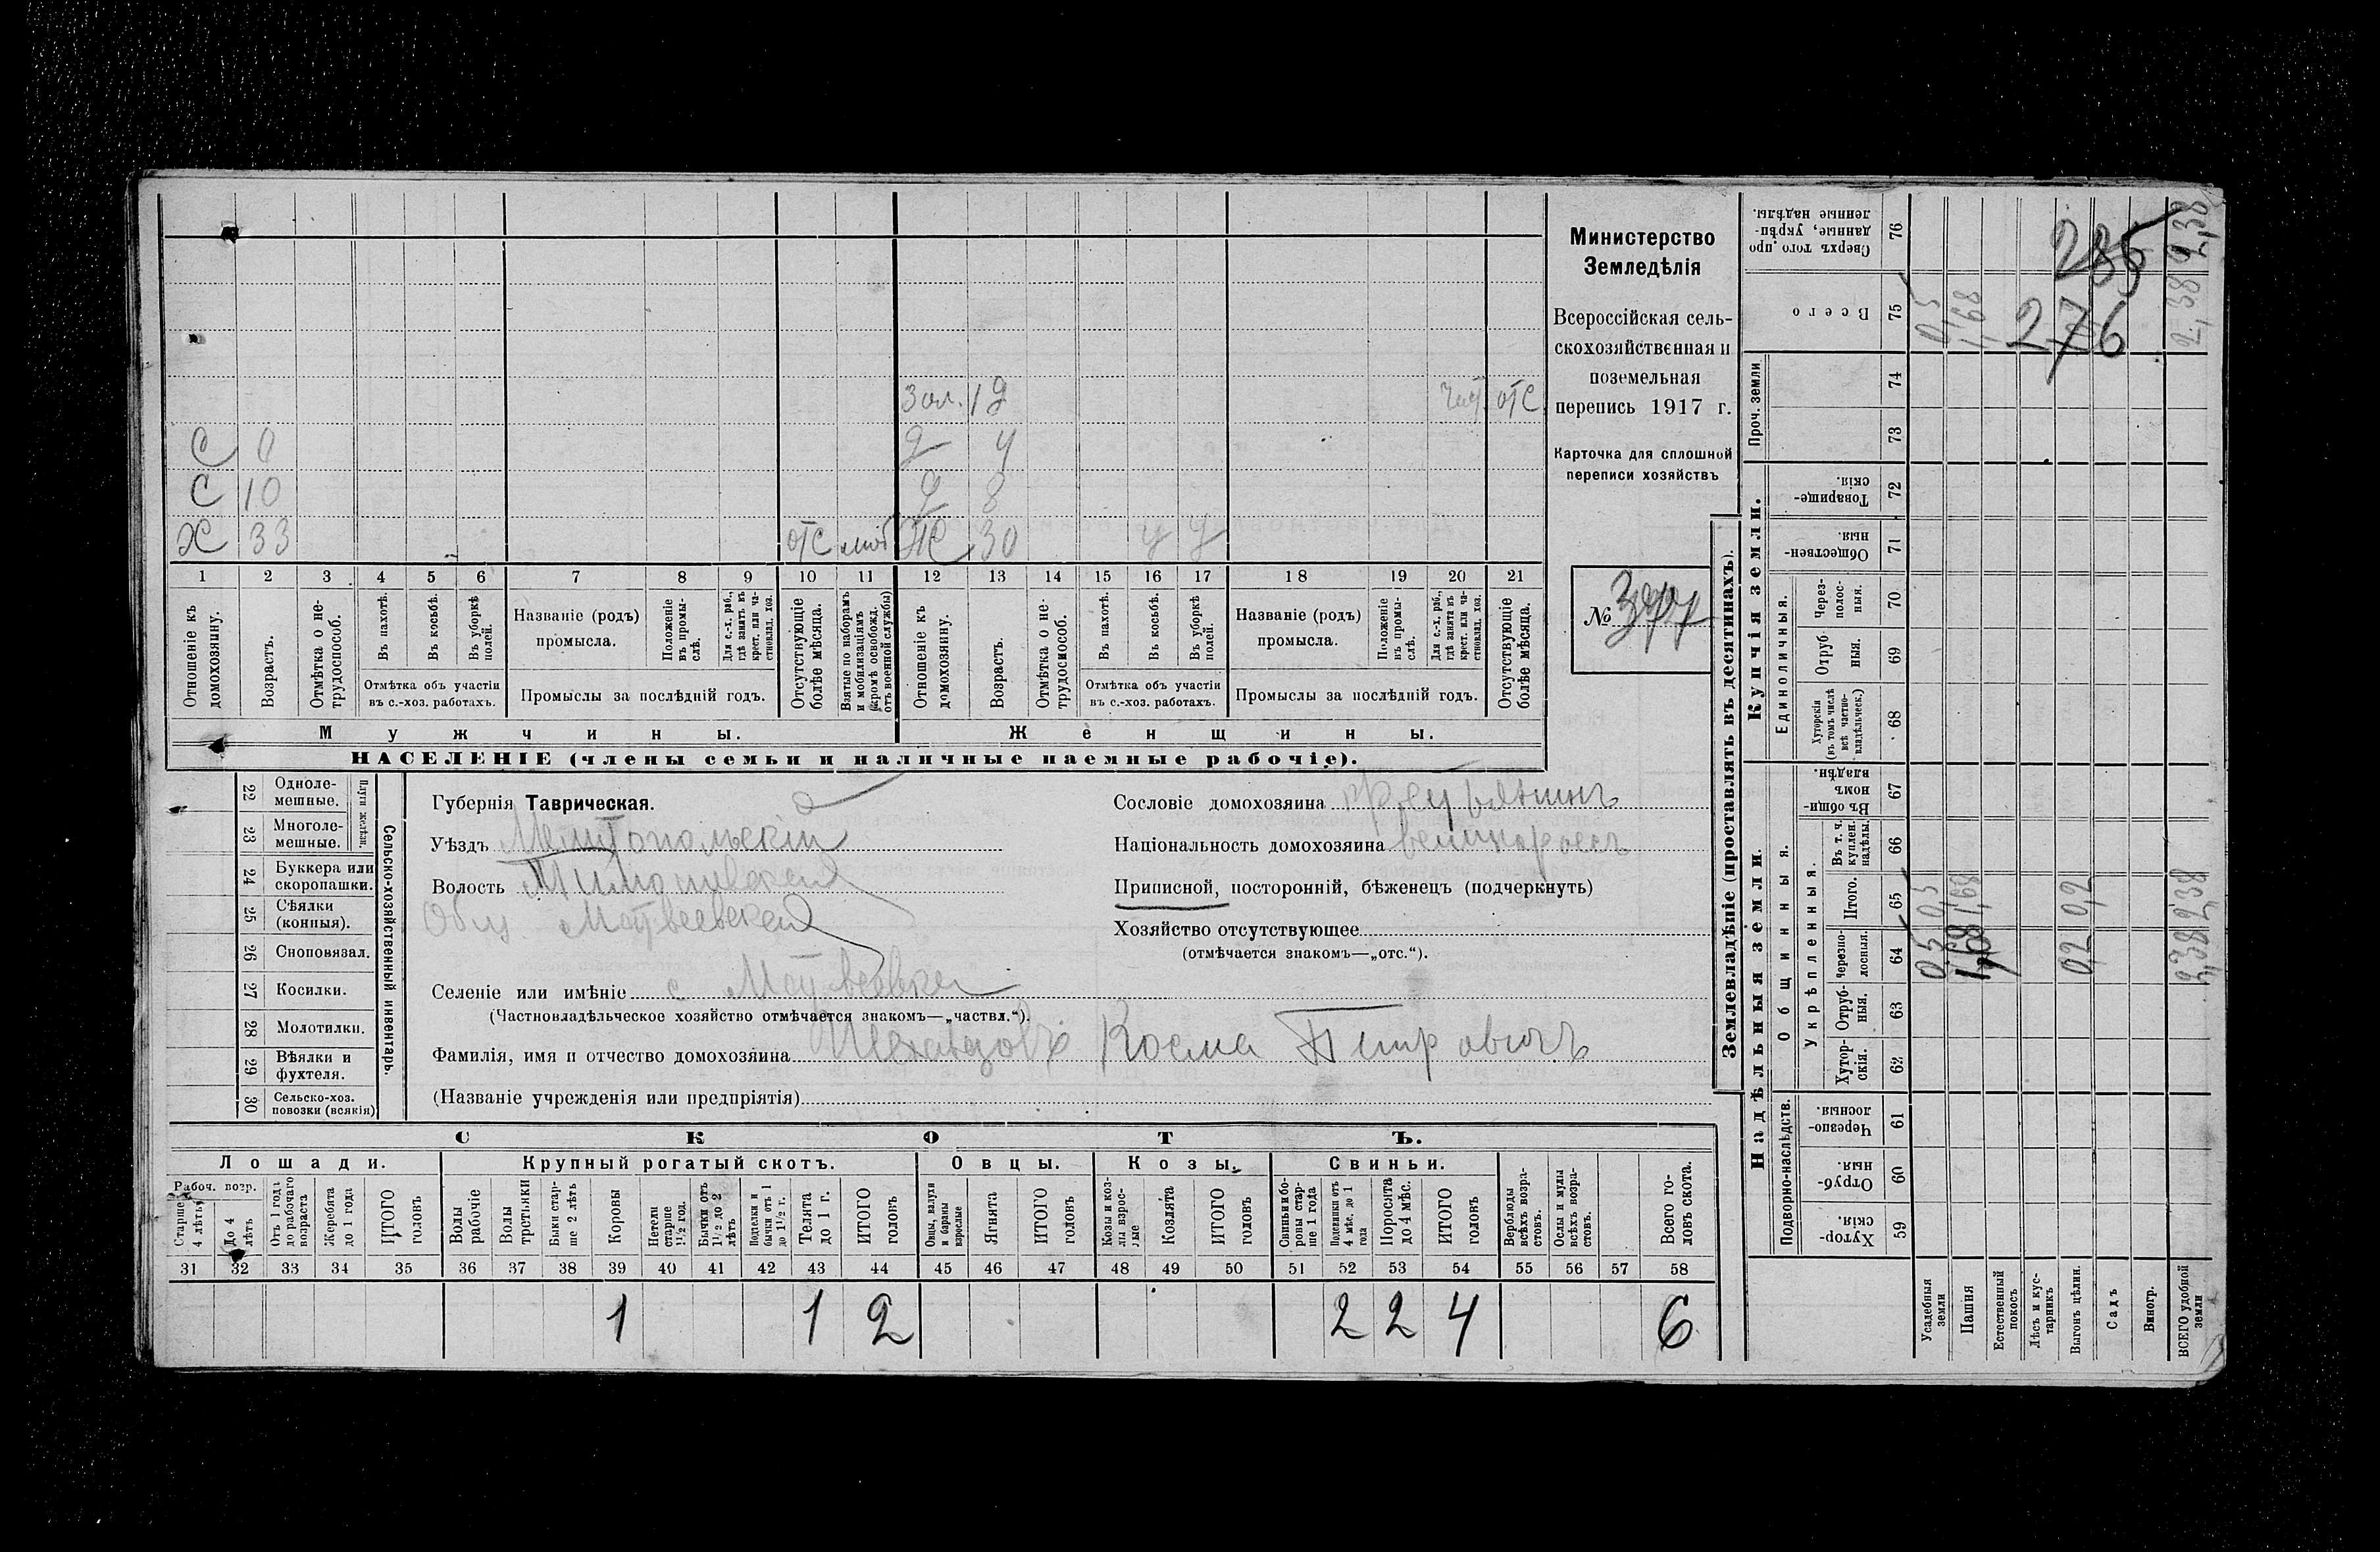 Министерство
Земледѣлія
Всероссійская сель-
скохозяйственная и
поземельная
перепись 1917 г.
Карточка для сплошной
переписи хозяйствъ
№ 377
Зол. 19 отс
С 0 д 4
С 10 д 8
Х 33 отс моб Ж 30 у у
1 2 3 4 5 6 7 8 9 10 11 12 13 14 15 16 17 18 19 20 21
Отношеніе къ домохозяину.
Возрастъ.
Отмѣтка о не-трудоспособ.
Въ пахотѣ.
Въ косьбѣ.
Въ уборкѣ полей.
Отмѣтка объ участіи
въ с.-хоз. работахъ.
Названіе (родъ)
промысла.
Положеніе въ промы-слѣ.
Для с.-х. раб., гдѣ занятъ въ крест. или ча-стновлад. хоз.
Промыслы за послѣдній годъ.
Отсутствующіе болѣе мѣсяца.
Взятые по наборамъ и мобилизаціямъ (кромѣ освобожд. отъ военной службы)
Отношеніе къ домохозяину.
Возрастъ.
Отмѣтка о не-трудоспособ.
Въ пахотѣ.
Въ косьбѣ.
Въ уборкѣ полей.
Отмѣтка объ участіи
въ с.-хоз. работахъ.
Названіе (родъ)
промысла.
Положеніе въ промы-слѣ.
Для с.-х. раб., гдѣ занята въ крест. или ча-стновлад. хоз.
Промыслы за послѣдній годъ.
Отсутствующіе болѣе мѣсяца.
Мужчины. Женщины.
НАСЕЛЕНІЕ (члены семьи и наличные наемные рабочіе).
Сельско-хозяйственный инвентарь.
Плуги желѣзн.
22 Одноле-мешные.
23 Многоле-мешные.
24 Буккера или скоропашки.
25 Сѣялки (конныя).
26 Сноповязал.
27 Косилки.
28 Молотилки.
29 Вѣялки и фухтеля.
30 Сельско-хоз. повозки (всякія)
Губернія Таврическая.
Уѣздъ Мелитопольскій
Волость
Общ. Матвеевская
Селеніе или имѣніе с Матвеевка
(Частновладѣльческое хозяйство отмѣчается знакомъ—„частвл.“).
Фамилія, имя и отчество домохозяина Косма Петровичъ
(Названіе учрежденія или предпріятія)
Сословіе домохозяина
Національность домохозяина великороссъ
Приписной, посторонній, бѣженецъ (подчеркнуть)
Хозяйство отсутствующее
(отмѣчается знакомъ—„отс.“).
СКОТЪ.
Лошади. Крупный рогатый скотъ. Овцы. Козы. Свиньи.
Рабоч. возр.
Старше 4 лѣтъ
До 4 лѣтъ
Отъ 1 года до рабочаго возраста
Жеребята до 1 года
ИТОГО головъ
Волы рабочіе
Волы третьяки
Быки стар-ше 2 лѣтъ
Коровы
Нетели старше 1½ год.
Бычки отъ 1½ до 2 лѣтъ
Подтелки и бычки отъ 1 до 1½ г.
Телята до 1 г.
ИТОГО головъ
Овцы, валухи и бараны взрослые
Ягнята
ИТОГО головъ
Козы и коз-лы взрос-лые
Козлята
ИТОГО головъ
Свиньи и бо-ровы стар-ше 1 года
Подсвинки отъ 4 мѣс. до 1 года
Поросята до 4 мѣс.
ИТОГО головъ
Верблюды всѣхъ возра-стовъ.
Ослы и мулы всѣхъ возра-стовъ.
Всего го-ловъ скота.
31 32 33 34 35 36 37 38 39 40 41 42 43 44 45 46 47 48 49 50 51 52 53 54 55 56 57 58
1 1 2 2 2 4 6
Землевладѣніе (проставлять въ десятинахъ).
Надѣльныя земли. Купчія земли. Проч. земли
Подворно-наслѣдств. Общинныя. Единоличныя.
Укрѣпленныя.
Хутор-скія. 59
Отруб-ныя. 60
Черезпо-лосныя. 61
Хутор-скія. 62
Отруб-ныя. 63
Черезпо-лосныя. 64
Итого. 65
Въ т. ч. куплен. надѣлы. 66
Въ общи-номъ владѣн. 67
Хуторскія (въ томъ числѣ всѣ частно-владѣльческ.) 68
Отруб-ныя. 69
Через-полос-ныя. 70
Обществен-ныя. 71
Товарище-скія. 72
73
74
Всего 75
Сверхъ того про-данные, укрѣп-ленные надѣлы. 76
Усадебныя земли 0,5 0,5 0,5
Пашня 1,68 1,68 1,68
Естественный покосъ
Лѣсъ и кус-тарникъ
Выгонъ цѣлин. 0,2 0,2
Садъ
Виногр.
ВСЕГО удобной земли 2,38 2,38 2,38 2,38
276
235